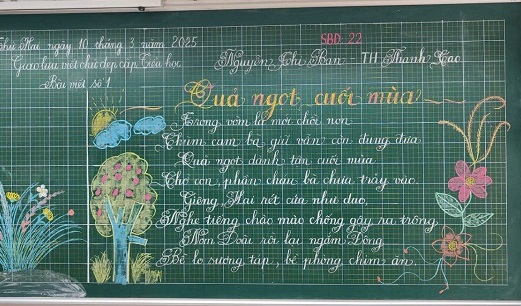 Thứ Hai ngày 10 tháng 3 năm 2025
Giao lưu viết chữ đẹp cấp Tiểu học
Bài viết số 1
SBD. 22
Nguyễn Thị Ban - TH Thanh Cao
Quả ngọt cuối mùa
Trong vòm lá mới chồi non
Chùm cam bà giữ vẫn còn đung đưa
Quả ngọt dành tận cuối mùa
Chờ con, phần cháu bà chưa trảy vào.
Giêng, Hai rét cứa như dao,
Nghe tiếng chào mào chống gậy ra trông,
Nom Đoài rồi lại ngắm Đông
Bề lo sương táp, bề phòng chim ăn.